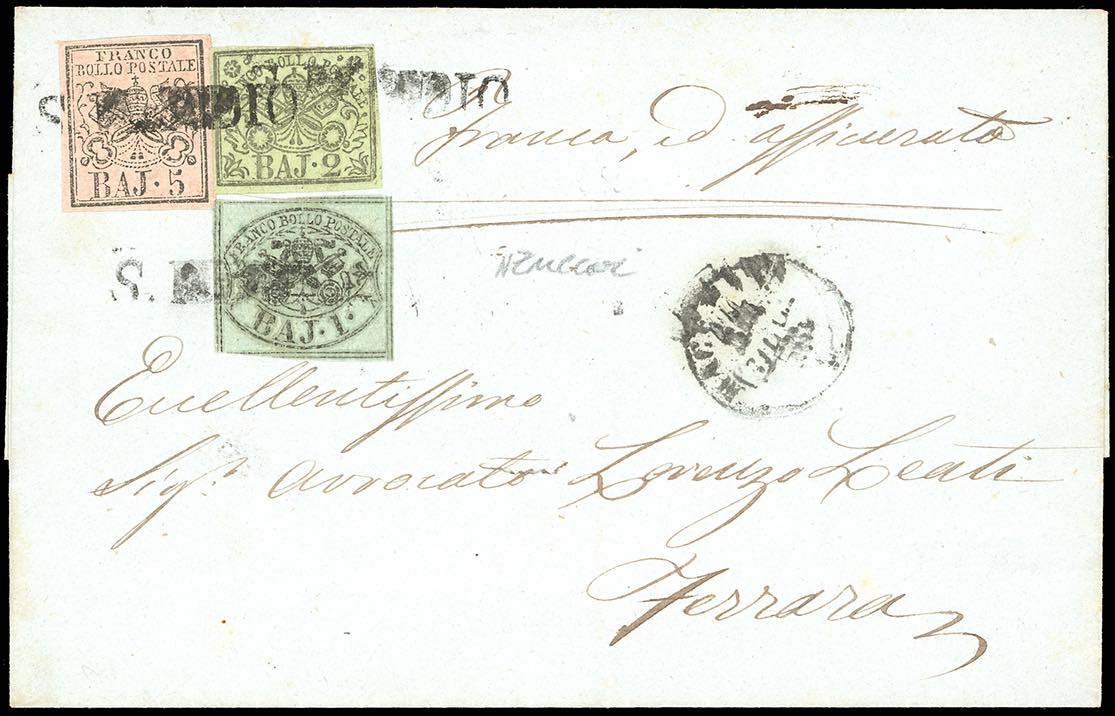 FRANCO
BOLLO POSTALE
BAJ. 5
FRANCO BOLLO POSTALE
BAJ. 2
franca, ed assicurata
FRANCO BOLLO POSTALE
BAJ. 1.
S.
Eccellentissimo
Sig.r Avvocato Lorenzo Leati
Ferrara